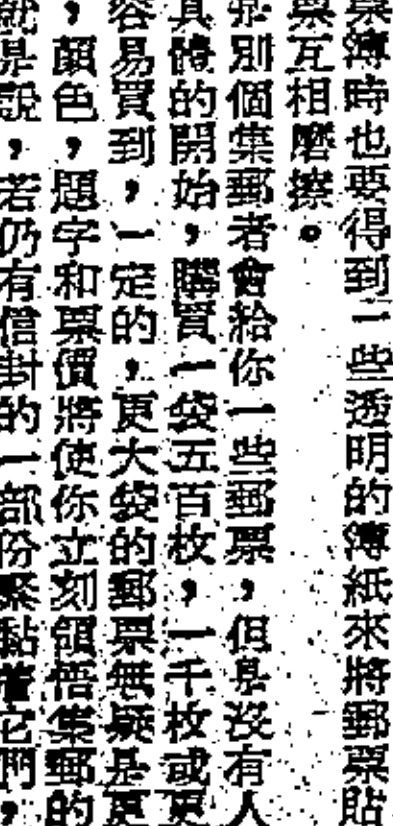 票簿時也要得到一些透明的薄紙來將郵票貼
票互相磨擦。
是別個集郵者會給你一些郵票,但是沒有人
具體的開始,購買一袋五百枚,一千枚或更
容易買到,一定的,更大袋的郵票無疑是更
,顏色,題字和票價將使你立刻領悟集郵的
就是說,若仍有信封的一部份緊黏着它們,